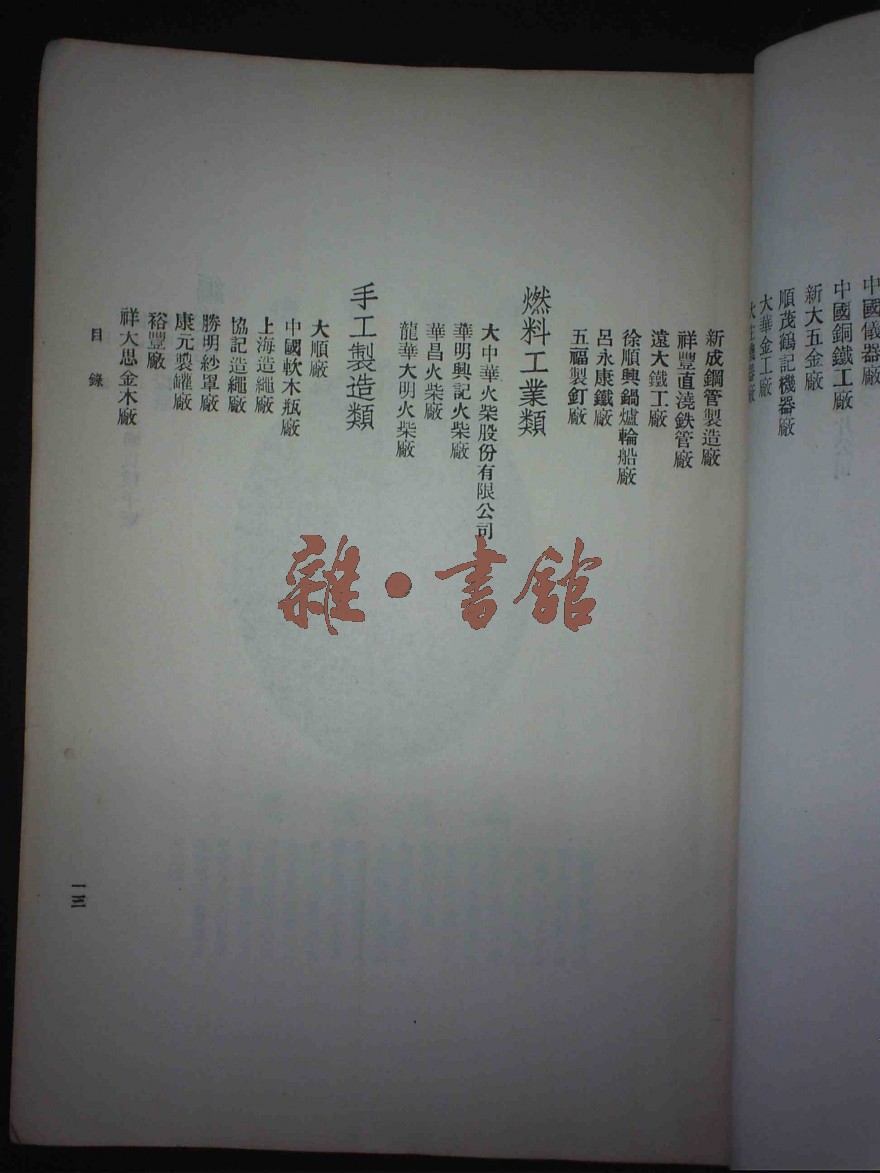 中國儀器廠
中國銅鐵工廠
新大五金廠
順茂鶴記機器廠
大華金工廠
新成鋼管製造廠
祥豐直澆鉄管廠
遠大鐵工廠
徐順興鍋爐輪船廠
呂永康鐵廠
五福製釘廠
燃料工業類
大中華火柴股份有限公司
華明興記火柴廠
華昌火柴廠
龍華大明火柴廠
手工製造類
大順廠
中國軟木瓶廠
上海造繩廠
協記造繩廠
勝明紗罩廠
康元製罐廠
裕豐廠
祥大思金木廠
目錄
一三
雜·書館